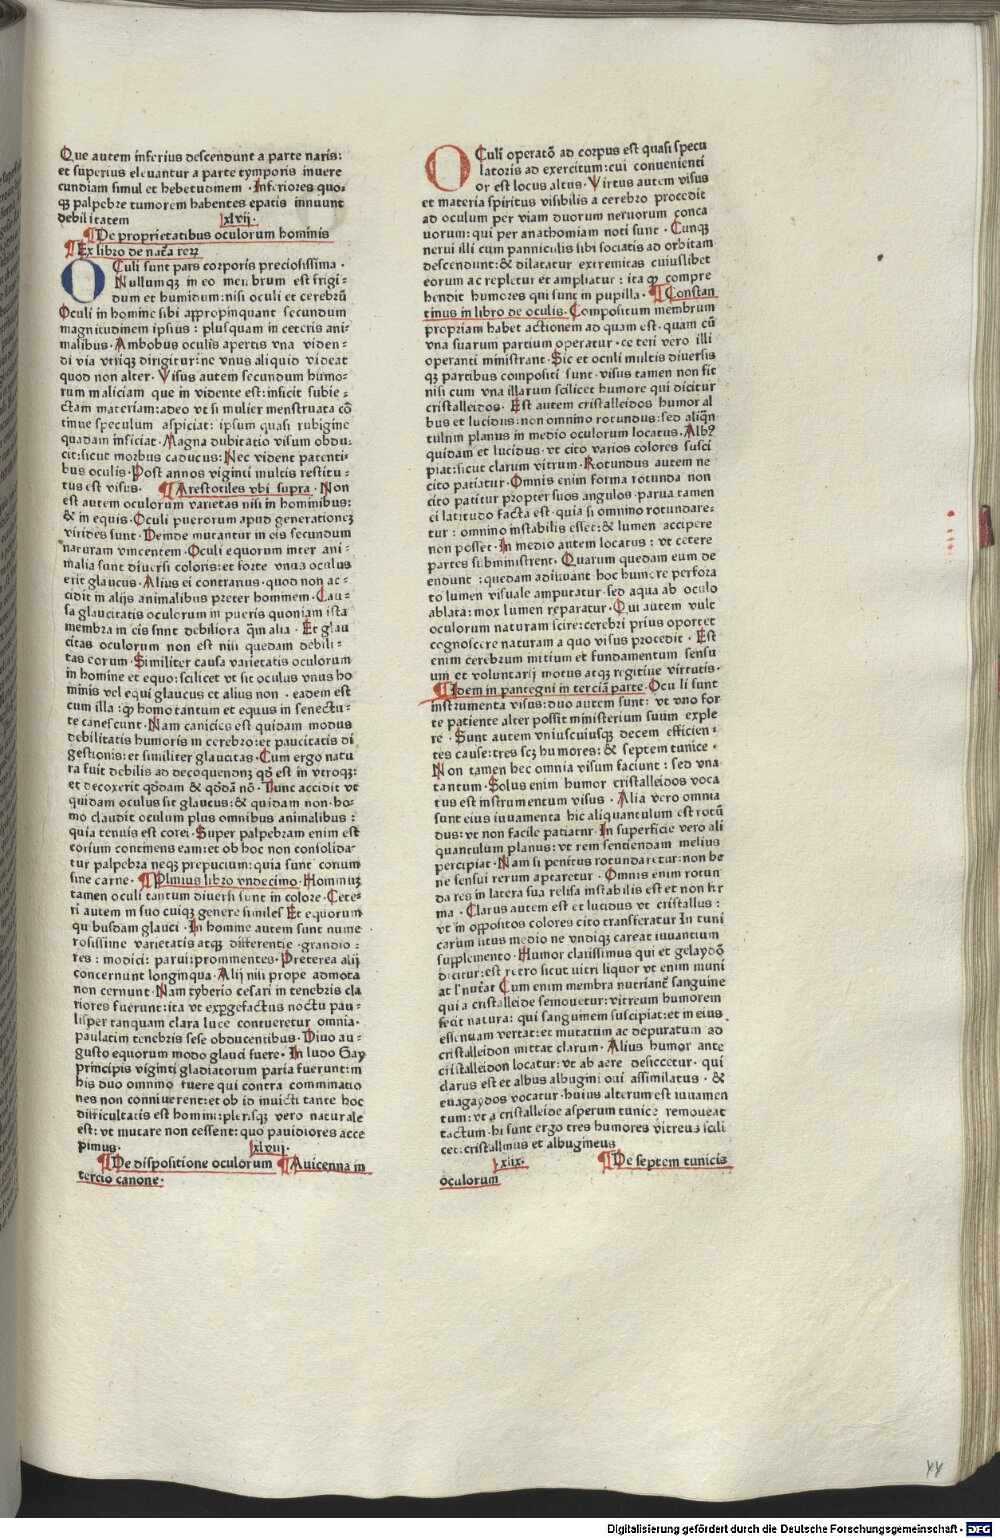 Que autem inferius descendunt a parte naris:
et superius eleuantur a parte tymporis iuuere
cundiam simul et hebetudinem · Inferiores quo⸗
qꝫ palpebre tumorem habentes epatis innuunt
debilitatem xlvij·
¶ De proprietatibus oculorum hominis
¶ Ex libro de nat̄a reꝝ
OCuli sunt pars corporis preciosissima ·
Nullumqꝫ in eo membrum est frigi⸗
dum et humidum: nisi oculi et cerebrū
Oculi in homine sibi appropinquant secundum
magnitudinem ipsius : plusquam in ceteris ani⸗
malibus · Ambobus oculis apertis vna viden⸗
di via vtriqꝫ dirigitur: ne vnus aliquid videat
quod non alter · Visus autem secundum humo⸗
rum maliciam que in vidente est: inficit subie⸗
ctam materiam: adeo vt si mulier menstruata cō
tinue speculum aspiciat: ipsum quasi rubigine
quadam inficiat · Magna dubitatio visum obdu⸗
cit: sicut morbus caducus: Nec vident patenti⸗
bus oculis · Post annos viginti multis restitu⸗
tus est visus· ¶ Arestotiles vbi supra · Non
est autem oculorum varietas nisi in hominibus:
& in equis · Oculi puerorum apud generationeꝫ
virides sunt · Deinde mutantur in eis secundum
naturam vincentem · Oculi equorum inter ani⸗
malia sunt diuersi coloris: et forte vnus oculus
erit glaucus · Alius ei contrarius · quod non ac⸗
cidit in alijs animalibus preter hominem · Cau⸗
sa glaucitatis oculorum in pueris quoniam ista
membra in eis sunt debiliora q̄m alia · Et glau
citas oculorum non est nisi quedam debili⸗
tas eorum · Similiter causa varietatis oculorum
in homine et equo: scilicet vt sit oculus vnus ho
minis vel equi glaucus et alius non · eadem est
cum illa : qꝑ homo tantum et equus in senectu⸗
te canescunt · Nam canicies est quidam modus
debilitatis humoris in cerebro: et paucitatis di
gestionis: et similiter glaucitas · Cum ergo natu
ra fuit debilis ad decoquendonꝫ qd̄ est in vtroqꝫ:
et decoxerit qd̄dam & qd̄dā nō · Tunc accidit vt
quidam oculus sit glaucus: & quidam non · ho⸗
mo claudit oculum plus omnibus animalibus :
quia tenuis est corei · Super palpebram enim est
corium continens eam: et ob hoc non consolida⸗
tur palpebra neqꝫ prepucium: quia sunt corium
sine carne · ¶ Plinius libro vndecimo · Hominuꝫ
tamen oculi tantum diuersi sunt in colore · Cete⸗
ri autem in suo cuiqꝫ genere similes Et equorum
quibusdam glauci · In homine autem sunt nume
rosissime varietatis atqꝫ differentie · grandio⸗
res : modici: parui: prominentes · Preterea alij
concernunt longinqua · Alij nisi prope admota
non cernunt · Nam tyberio cesari in tenebris cla
riores fuerunt: ita vt expgefactus noctu pau⸗
lisper tanquam clara luce contueretur omnia ·
paulatim tenebris sese obducentibus · Diuo au⸗
gusto equorum modo glauci fuere · In ludo Gay
principis viginti gladiatorum paria fuerunt: in
his duo omnino fuere qui contra comminatio
nes non conniuerent: et ob id inuicti tante hoc
difficultatis est homini: plerisqꝫ vero naturale
est: vt nictare non cessent: quo pauidiores acce
pimus· xlviij·
¶ De dispositione oculorum ¶ Auicenna in
tercio canone·
OCuli operatō ad corpus est quasi specu
latoris ad exercitum: cui conuenienti
or est locus altus · Virtus autem visus
et materia spiritus visibilis a cerebro procedit
ad oculum per viam duorum neruorum conca
uorum: qui per anathomiam noti sunt · Cunqꝫ
nerui illi cum panniculis sibi sociatis ad orbitam
descendunt: & dilatatur extremitas cuiuslibet
eorum ac repletur et ampliatur : ita qꝑ compre
hendit humores qui sunt in pupilla · ¶ Constan
tinus in libro de oculis · Compositum membrum
propriam habet actionem ad quam est · quam cū
vna suarum partium operatur · ceteri vero illi
operanti ministrant · Sic et oculi multis diuersis
qꝫ partibus compositi sunt · visus tamen non fit
nisi cum vna illarum scilicet humore qui dicitur
cristalleidos · Est autem cristalleidos humor al
bus et lucidus: non omnino rotundus: sed aliqn̄
tulum planus in medio oculorum locatus · Albꝰ
quidam et lucidus · vt cito varios colores susci
piat: sicut clarum vitrum · Rotundus autem ne
cito patiatur · Omnis enim forma rotunda non
cito patitur propter suos angulos · parua tamen
ei latitudo facta est · quia si omnino rotundare⸗
tur : omnino instabilis esset: & lumen accipere
non posset · In medio autem locatus : vt cetere
partes subministrent · Quarum quedam eum de
fendunt : quedam adiuuant hoc humore perfora
to lumen visuale amputatur · sed aqua ab oculo
ablata: mox lumen reparatur · Qui autem vult
oculorum naturam scire: cerebri prius oportet
cognoscere naturam a quo visus procedit · Est
enim cerebrum initium et fundamentum sensu
um et voluntarij motus atqꝫ regitiue virtutis·
¶ Idem in pantegni in terciā parte · Oculi sunt
instrumenta visus: duo autem sunt : vt vno for
te patiente alter possit ministerium suum exple
re · Sunt autem vniuscuiusqꝫ decem efficien⸗
tes cause: tres scꝫ humores: & septem tunice ·
Non tamen hec omnia visum faciunt : sed vna
tantum · Solus enim humor cristalleidos voca
tus est instrumentum visus · Alia vero omnia
sunt eius iuuamenta hic aliquantulum est rotū
dus: vt non facile patiatur · In superficie vero ali
quantulum planus: vt rem sentiendam melius
percipiat · Nam si penitus rotundaretur: non be
ne sensui rerum aptaretur · Omnis enim rotun
da res in latera sua relisa instabilis est et non fir
ma · Clarus autem est et lucidus vt cristallus :
vt in oppositos colores cito transferatur In tuni
carum situs medio ne vndiqꝫ careat iuuantium
supplemento · Humor clarissimus qui et gelaydō
dicitur: est retro sicut vitri liquor vt enim muni
at l' nut̄at Cum enim membra nutriant̄ sanguine
qui a cristalleide semouetur: vitreum humorem
fecit natura: qui sanguinem suscipiat: et in eius
essentiam vertat: et mutatum ac depuratum ad
cristalleidon mittat clarum · Alius humor ante
cristalleidon locatur: vt ab aere desiccetur · qui
clarus est et albus albugini oui assimilatus · &
euagaydos vocatur · huius alterum est iuuamen
tum: vt a cristalleide asperum tunice remoueat
tactum · hi sunt ergo tres humores vitreus scili
cet: cristallinus et albugineus
xlix· ¶ De septem tunicis
oculorum
Digitalisierung gefördert durch die Deutsche Forschungsgemeinschaft - DFG